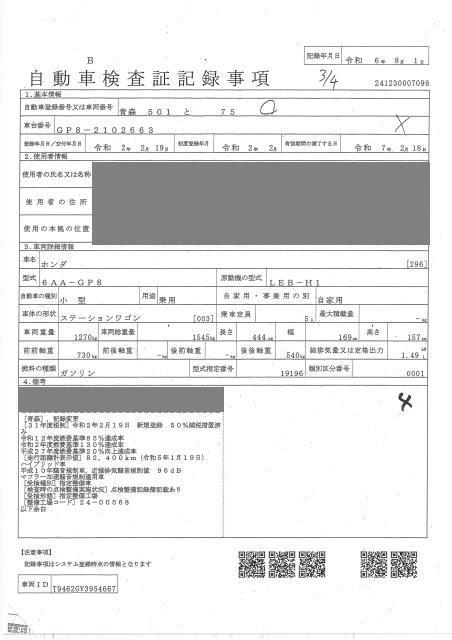 B
記録年月日 令和 6年 8月 1日
自動車検査証記録事項
3/4
241230007098
1.基本情報
自動車登録番号又は車両番号 青森 501 と 75
車台番号 GP8-2102663
登録年月日/交付年月日 令和 2年 2月 19日 初度登録年月 令和 2年 2月 有効期間の満了する日 令和 7年 2月 18日
2.使用者情報
使用者の氏名又は名称
使用者の住所
使用の本拠の位置
3.車両詳細情報
車名 ホンダ [296]
型式 6AA-GP8 原動機の型式 LEB-H1
自動車の種別 小型 用途 乗用 自家用・事業用の別 自家用
車体の形状 ステーションワゴン [003] 乗車定員 5人 最大積載量 -kg
車両重量 1270kg 車両総重量 1545kg 長さ 444cm 幅 169cm 高さ 157cm
前前軸重 730kg 前後軸重 -kg 後前軸重 -kg 後後軸重 540kg 総排気量又は定格出力 1.49 L
燃料の種類 ガソリン 型式指定番号 19196 類別区分番号 0001
4.備考
4
[青森],記録変更
[31年度税制] 令和2年2月19日 新規登録 50%減税措置済
み
令和12年度燃費基準85%達成車
令和2年度燃費基準130%達成車
平成27年度燃費基準20%向上達成車
[走行距離計表示値] 82,400km (令和5年1月19日)
ハイブリッド車
平成10年騒音規制車,近接排気騒音規制値 96dB
マフラー加速騒音規制適用車
[受検種別] 指定整備車
[検査時の点検整備実施状況] 点検整備記録簿記載あり
[受検形態] 指定整備工場
[整備工場コード] 24-00568
以下余白
【注意事項】
記録事項はシステム登録時点の情報となります
車両ID T9462GV3954667